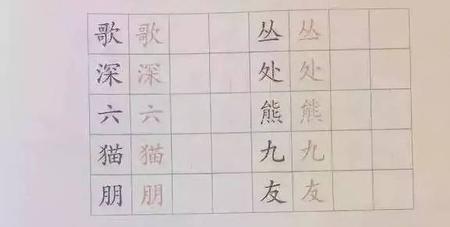 歌歌 丛丛
深深 处处
六六 熊熊
猫猫 九九
朋朋 友友